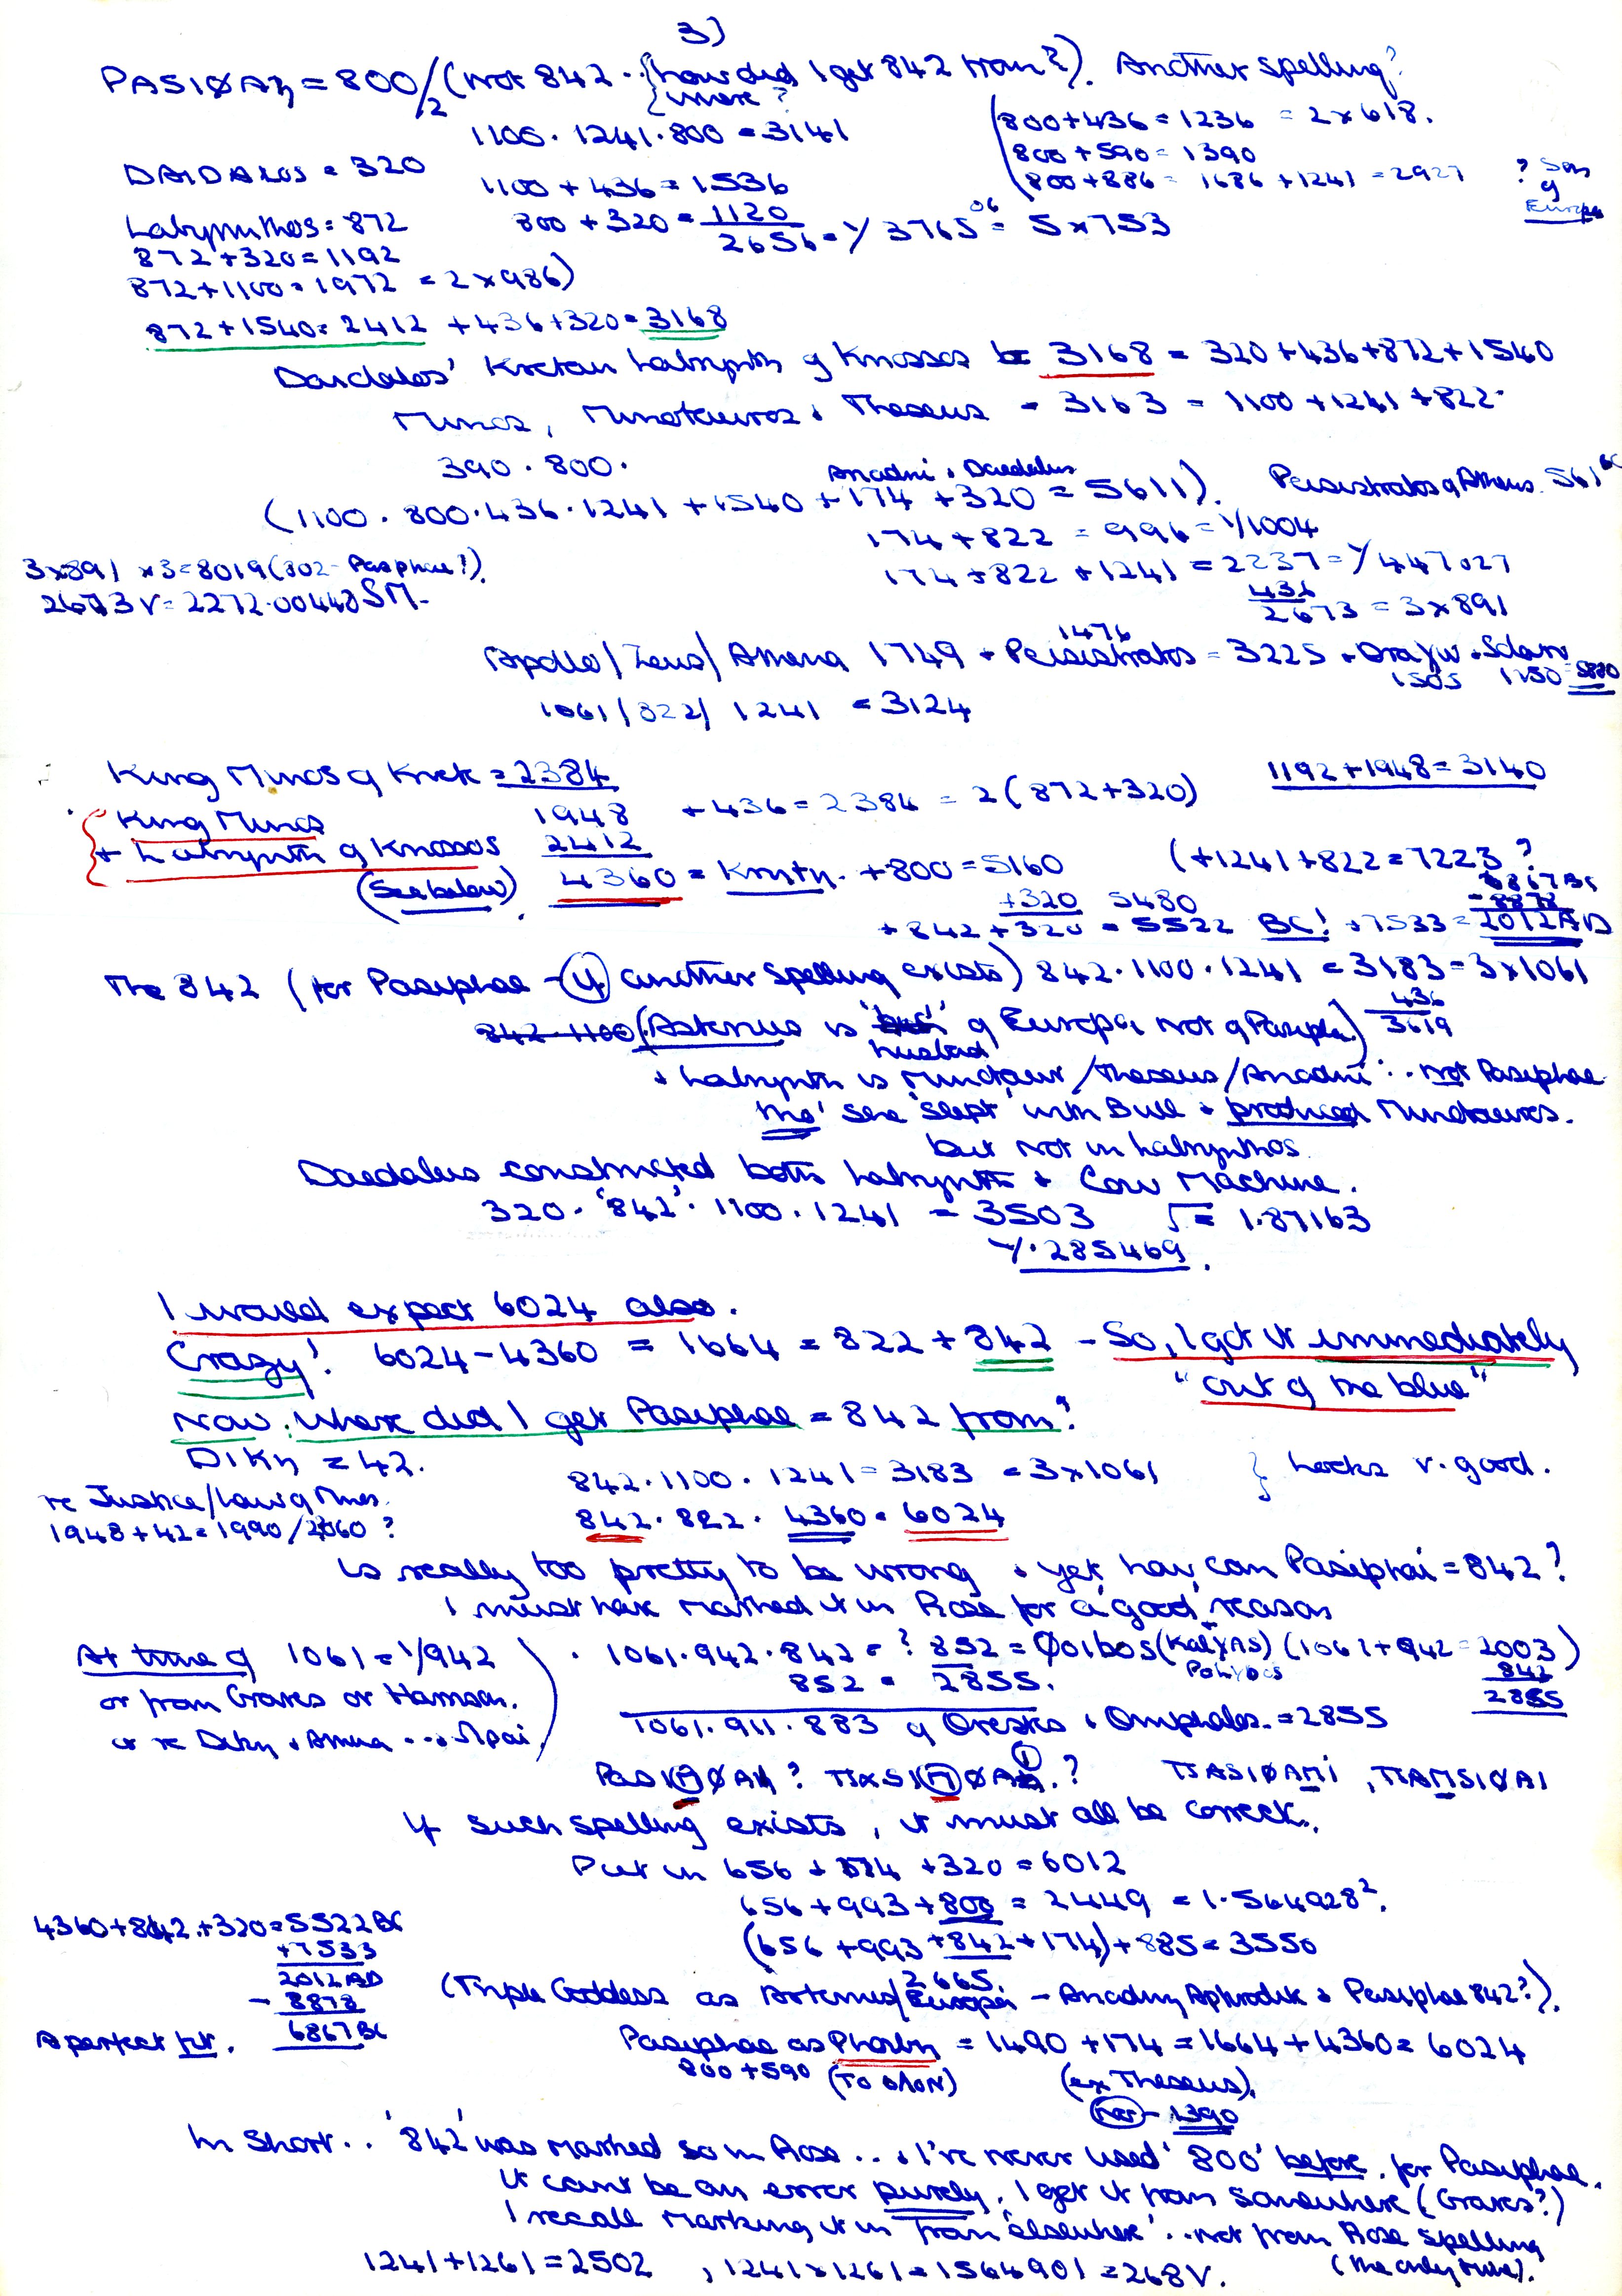 3)
PASIØAη = 800/2 (not 842 .. {how did I get 842 from?). Another spelling?
{where?
1100 . 1241 . 800 = 3141
(800+436 = 1236 = 2x618.
800 + 590 = 1390
800+886 = 1686 + 1241 = 2927 ? Son of Europa
DAIDALOS = 320
1100 + 436 = 1536
Labyrinthos = 872
800 + 320 = 1120
2656 = 1/ 3765 06 = 5x753
872 + 320 = 1192
872 + 1100 = 1972 = 2x986)
872 + 1540 = 2412 + 436 + 320 = 3168
Daidalos' Kretan Labrynth of Knossos is 3168 = 320 + 436 + 872 + 1540
Minos, Minotauros & Theseus = 3163 = 1100 + 1241 + 822.
390 . 800.
Ariadni & Daedalus
(1100 . 800 . 436 . 1241 + 1540 + 174 + 320 = 5611). Peisistratos of Athens. 561 BC
174 + 822 = 996 = 1/1004
3x891 x3 = 8019 (802 - Pasiphae!).
174 + 822 + 1241 = 2237 = 1/447027
2673 V = 2272.00448 SM.
436
2673 = 3x891
1476
Apollo / Zeus / Athena 1749 + Peisistratos = 3225 + Drakw + Solon
1505 1150 = 5880
1061 / 822 / 1241 = 3124
King Minos of Krete = 2384
1192 + 1948 = 3140
{ King Minos 1948 + 436 = 2384 = 2(872+320)
+ Labrynth of Knossos 2412
(See below) 4360 = Krηtη. + 800 = 5160 (+1241 + 822 = 7223 ?
+320 5480
6867 BC
- 8878
+ 842 + 320 = 5522 BC! + 7533 = 2012 AD
The 842 (for Pasiphae - if another spelling exists) 842 . 1100 . 1241 = 3183 = 3x1061
436
3619
842 . 1100 (Asterius is husband of Europa, not of Pasiph.)
& Labrynth is Minotaur / Theseus / Ariadni .. not Pasiphae
tho' she 'slept' with Bull & produced Minotauros.
but not in Labrynthos.
Daedalus constructed both Labrynth & Cow Machine.
320 . '842' . 1100 . 1241 = 3503 √ = 1.87163
1/.285469.
I would expect 6024 also.
Crazy! 6024 - 4360 = 1664 = 822 + 842 - So, I got it immediately
"out of the blue"
Now: where did I get Pasiphae = 842 from?
Dikη = 42.
842 . 1100 . 1241 = 3183 = 3x1061 } Looks v. good.
re Justice / Law of Minos
1948 + 42 = 1990 / 2060 ?
842 . 822 . 4360 = 6024
is really too pretty to be wrong & yet, how, can Pasiphai = 842?
I must have marked it in Rose for a 'good' reason
At time of 1061 = 1/942
or from Graves or Hamson.
or re Diky & Athena ... Ωpai.
. 1061 . 942 . 842 = ? 852 = Øoibos (Kalχas) (1061 + 942 = 2003)
Polybos
852 = 2855.
842
2855
1061 . 911 . 883 of Orestes & Omphalos = 2855
PasiMØAη? ΠASIMØAη.? ΠASIØAMi, ΠAMSIØAI
If such spelling exists, it must all be correct.
Put in 656 + 174 + 320 = 6012
656 + 993 + 800 = 2449 = 1.564928².
4360 + 842 + 320 = 5522 BC
+7533
2012 AD
- 8878
6867 BC
A perfect fit.
(656 + 993 + 842 + 174) + 885 = 3550
2665.
(Triple Goddess as Artemis / Europa - Ariadny Aphrodite & Pasiphae 842?).
Pasiphae as Phoiby = 1490 + 174 = 1664 + 4360 = 6024
800 + 590 (TO OION)
(ex Theseus).
not - 1390
In short .. '842' was marked so in Rose .. & I've never used '800' before, for Pasiphae.
It can't be an error purely, I got it from somewhere (Graves?)
I recall marking it in from 'elsewhere' .. not from Rose spelling
(the only time).
1241 + 1261 = 2502 , 1241 x 1261 = 1564901 = 268V.